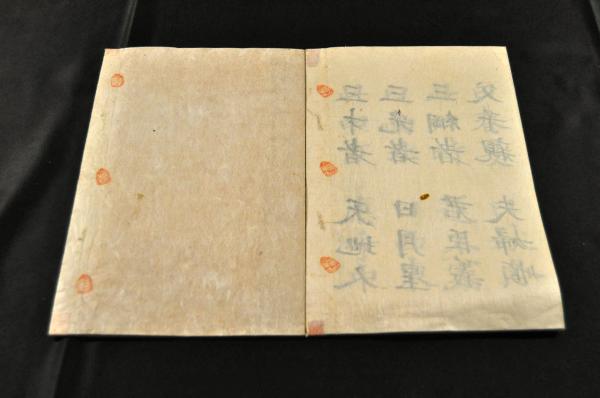 三才者 天地人
三光者 日月星
三綱者 君臣義
父子親 夫婦順